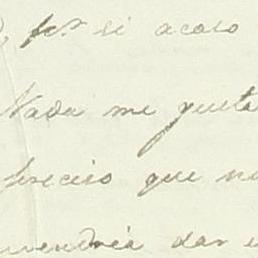 pr. si acaso
Nada me gusta
preciso que no
vendria dar